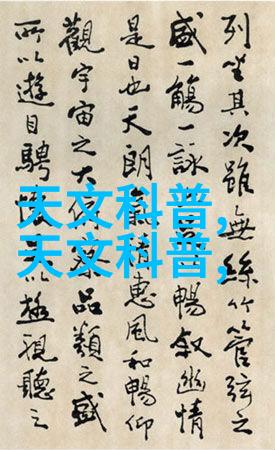 列坐其次雖無絲竹管弦之
盛一觴一詠暢叙幽情
是日也天朗氣清惠風和暢仰
觀宇宙之大俯察品類之盛
所以遊目騁懷足以極視聽之
天文科普,
天文科普,